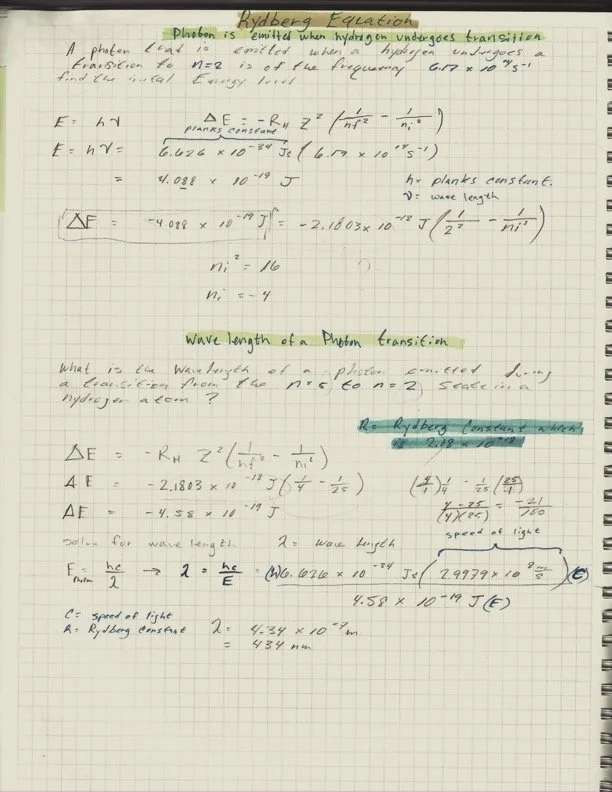 Rydberg Equation
Photon is emitted when hydrogen undergoes transition
A photon that is emitted when a hydrogen undergoes a
transition to n=2 is of the frequency 6.17 x 10¹⁴ s⁻¹
find the Energy level
E = hν ΔE = -R_H Z² (1/nf² - 1/ni²)
planks constant
E = hν = 6.626 x 10⁻³⁴ Js (6.17 x 10¹⁴ s⁻¹)
= 4.088 x 10⁻¹⁹ J h = planks constant.
ν = wave length
ΔE = -4.088 x 10⁻¹⁹ J = -2.1803 x 10⁻¹⁸ J (1/2² - 1/ni²)
ni² = 16
ni = -4
wave length of a Photon transition
what is the wavelength of a photon emitted during
a transition from the n=5 to n=2 state in a
hydrogen atom ?
R = Rydberg Constant which
is 2.18 x 10⁻¹⁸
ΔE = -R_H Z² (1/nf² - 1/ni²)
ΔE = -2.1803 x 10⁻¹⁸ J (1/4 - 1/25) (4/1) 1/4 - 1/25 (25/1)
ΔE = -4.58 x 10⁻¹⁹ J 4-25/(4)(25) = -21/100
speed of light
solve for wave length λ = wave length
E photon = hc/λ → λ = hc/E = (h) 6.626 x 10⁻³⁴ Js (2.9979 x 10⁸ m/s) (C)
4.58 x 10⁻¹⁹ J (E)
C = speed of light
R = Rydberg Constant λ = 4.34 x 10⁻⁷ m
= 434 nm